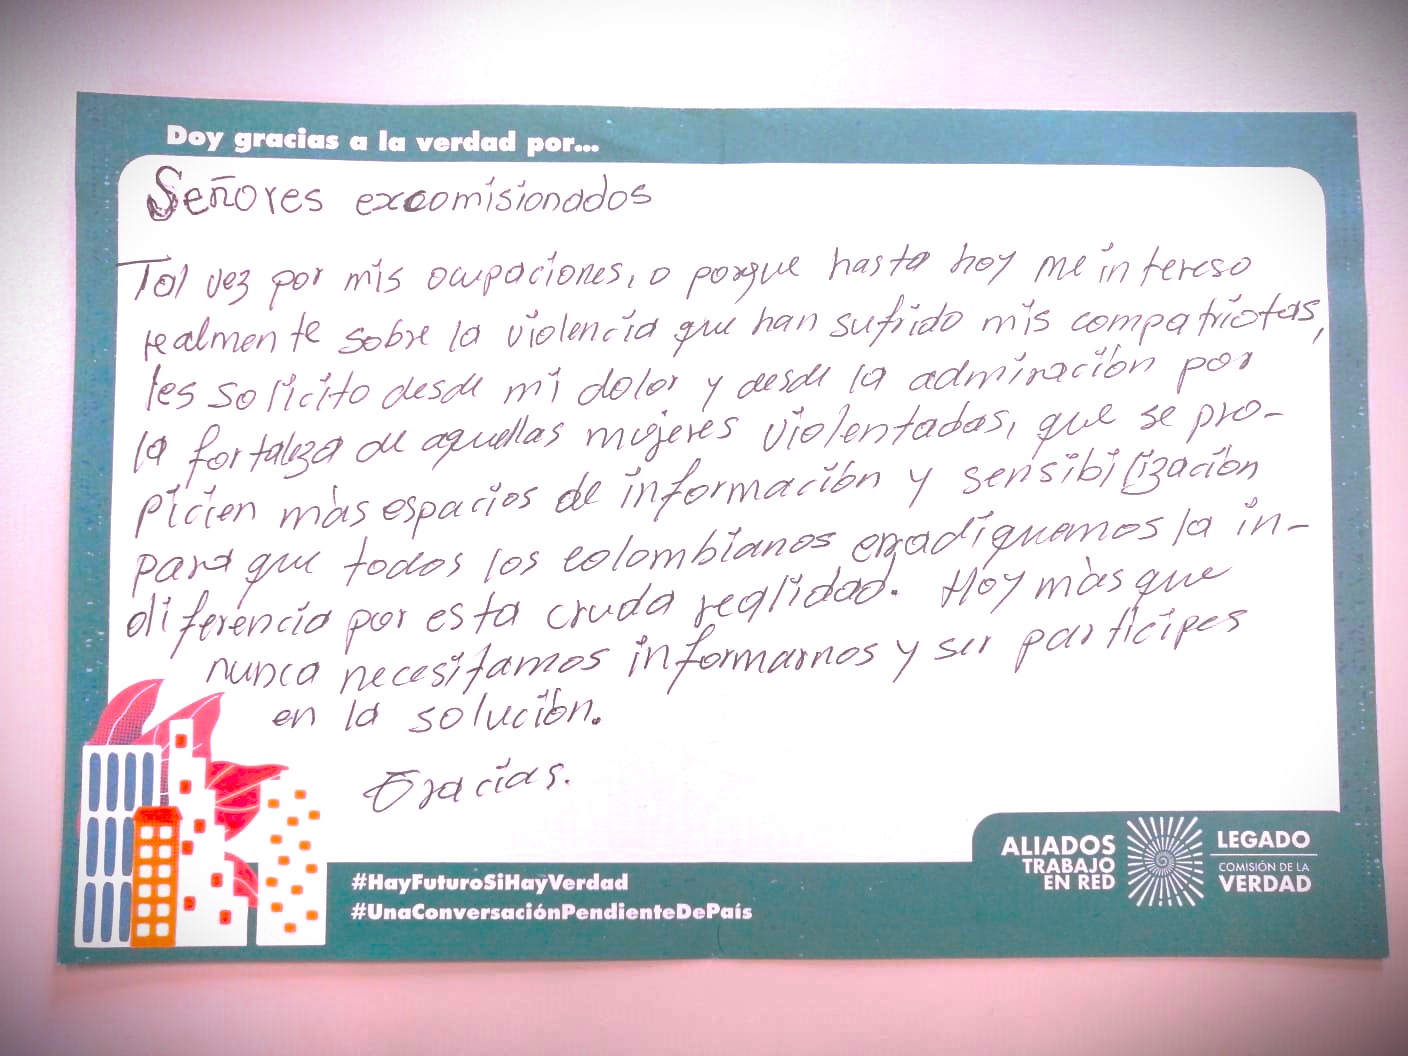 Doy gracias a la verdad por...
Señores excomisionados
Tal vez por mis ocupaciones, o porque hasta hoy me intereso
realmente sobre la violencia que han sufrido mis compatriotas,
les solicito desde mi dolor y desde la admiración por
la fortaleza de aquellas mujeres violentadas, que se pro-
picien màs espacios de información y sensibilización
para que todos los colombianos erradiquemos la in-
diferencia por esta cruda realidad. Hoy màs que
nunca necesitamos informarnos y ser participes
en la solución.
Gracias.
ALIADOS
TRABAJO
EN RED
LEGADO
COMISIÓN DE LA
VERDAD
#HayFuturoSiHayVerdad
#UnaConversaciónPendienteDePaís